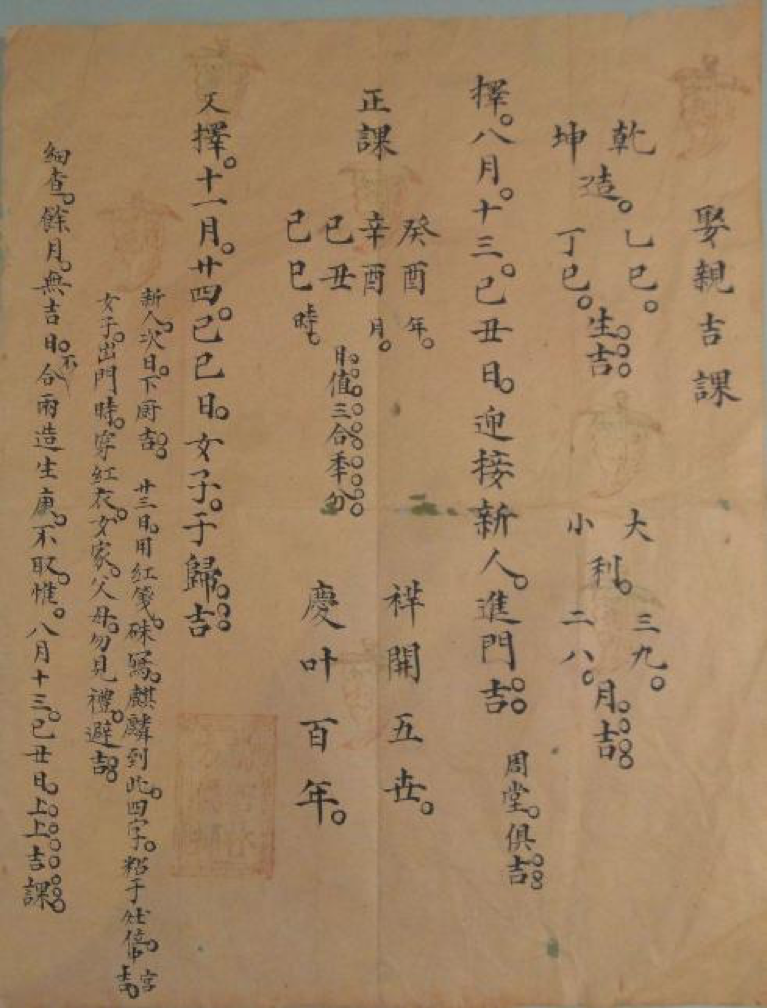 娶親吉課
乾造乙巳生吉 大利三九月吉
坤造丁巳生吉 小利二八月吉
擇八月十三己丑日迎接新人進門吉 周堂俱吉
正課
癸酉年
辛酉月
己丑日值三合季分
己巳時
祥開五世
慶叶百年
又擇十一月廿四己巳日女子于歸吉
新人次日下厨吉 廿三日用紅箋硃寫麒麟到此四字粘于
女子出門時穿紅衣女家父母勿見禮避吉
細查餘月無吉日不合兩造生庚不取惟八月十三己丑日上上吉課